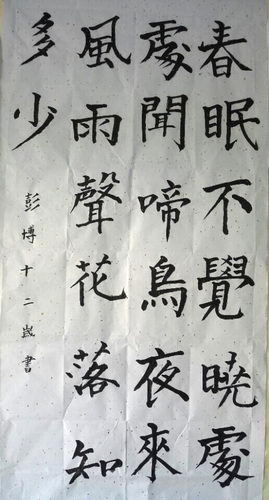 春眠不覺曉處
處聞啼鳥夜來
風雨聲花落知
多少
彭博十二歲書